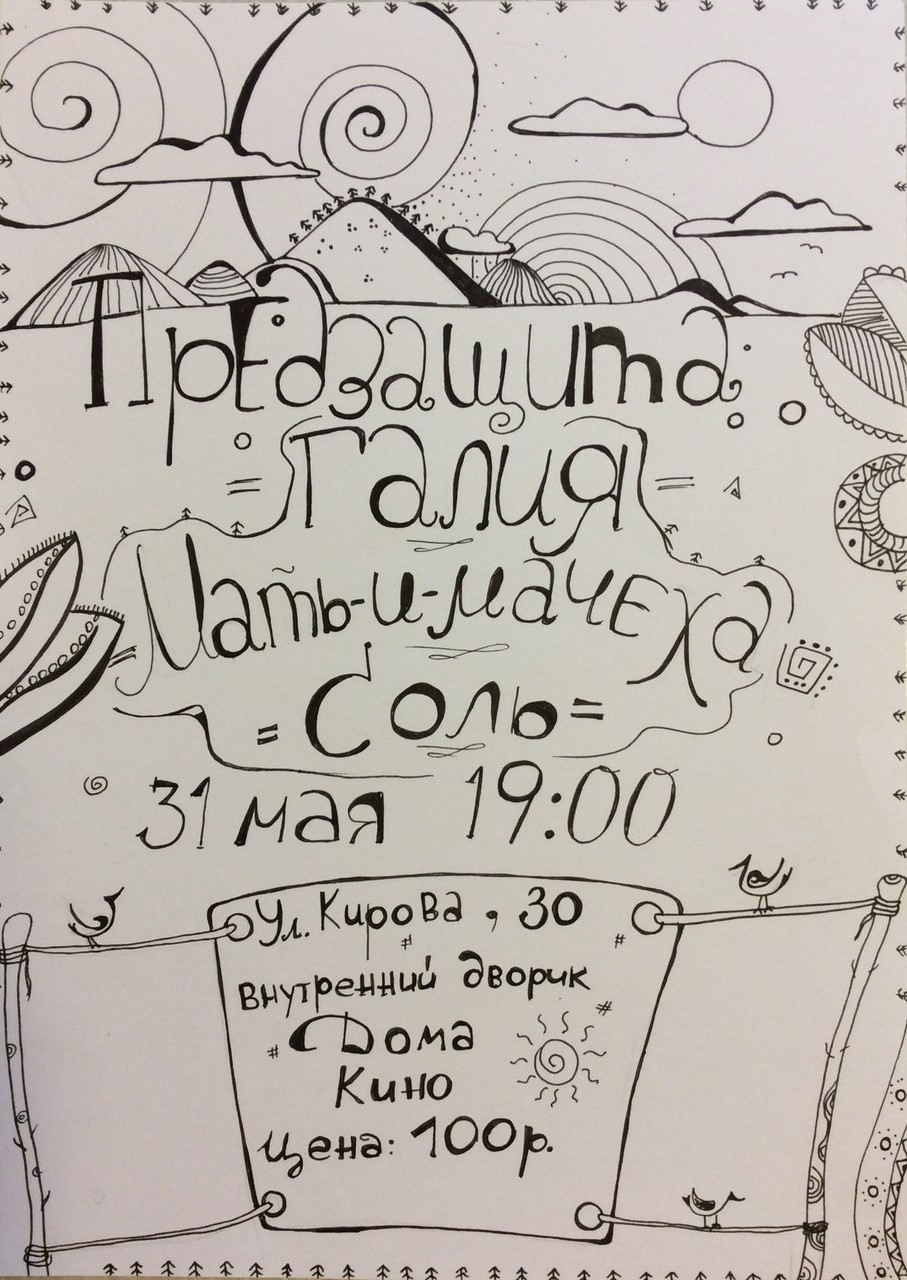 Предзащита:
Галия
Мать-и-мачеха
Соль
31 мая 19:00
Ул. Кирова, 30
внутренний дворик
Дома
Кино
цена: 100р.